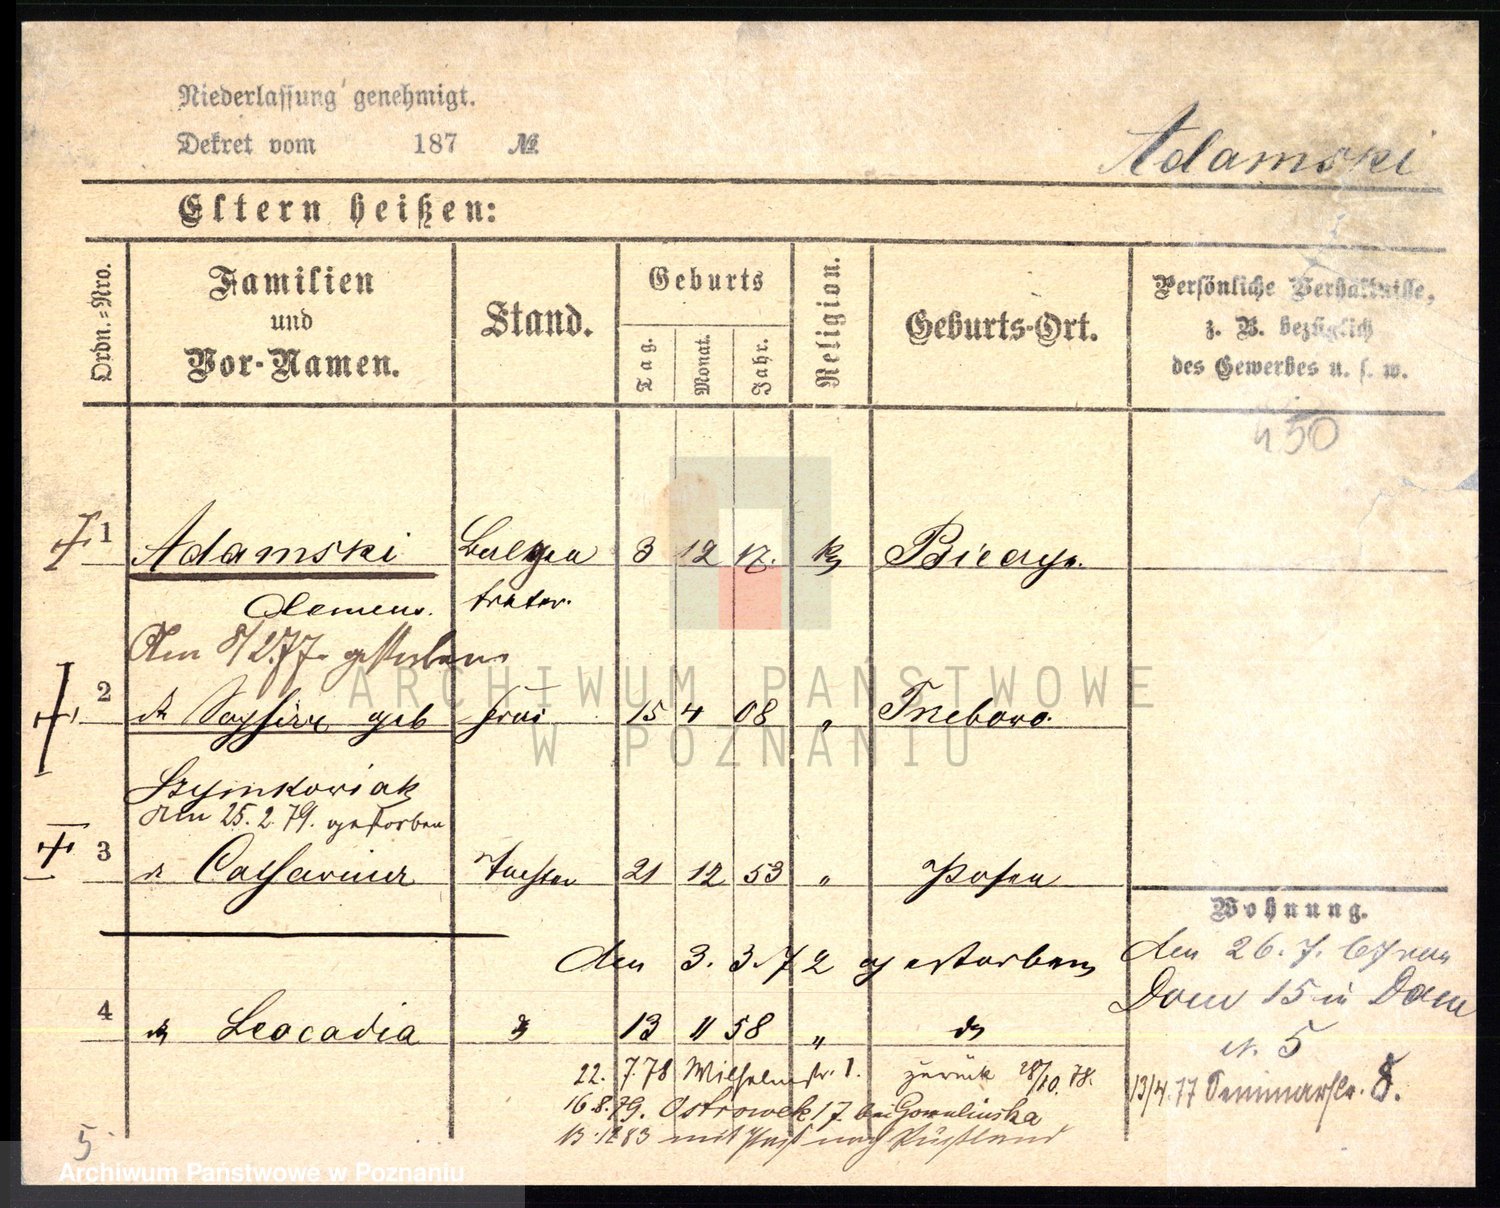 Niederlassung genehmigt.
Dekret vom 187 №
Adamski
Eltern heißen:
Ordn.=Nro.
Familien und Vor-Namen.
Stand.
Geburts
Tag. Monat. Jahr.
Religion.
Geburts-Ort.
Persönliche Verhältnisse,
z. B. bezüglich
des Gewerbes u. s. w.
450
1 Adamski 3 12 17.
Clemens.
Am 8/2.77. gestorben
ARCHIWUM PAŃSTWOWE
2 geb Frau 15 4 08 "
W POZNANIU
Szymkowiak
den 25.2.79. gestorben
3 Catharina Tochter 21 12 53 " Posen
Wohnung.
den 3. 3. 72 gestorben
den 26. 7. 67 von
Dom 15 in Dom
N. 5
4 Leocadia 13 11 58 "
22. 7.78 Wilhelmstr. 1. zurück 28/10. 78.
13/4.77 Seminarstr. 8.
16.8.79. Ostrowek 17 bei
13.12 83 mit Pass nach Rußland
5
Archiwum Państwowe w Poznaniu